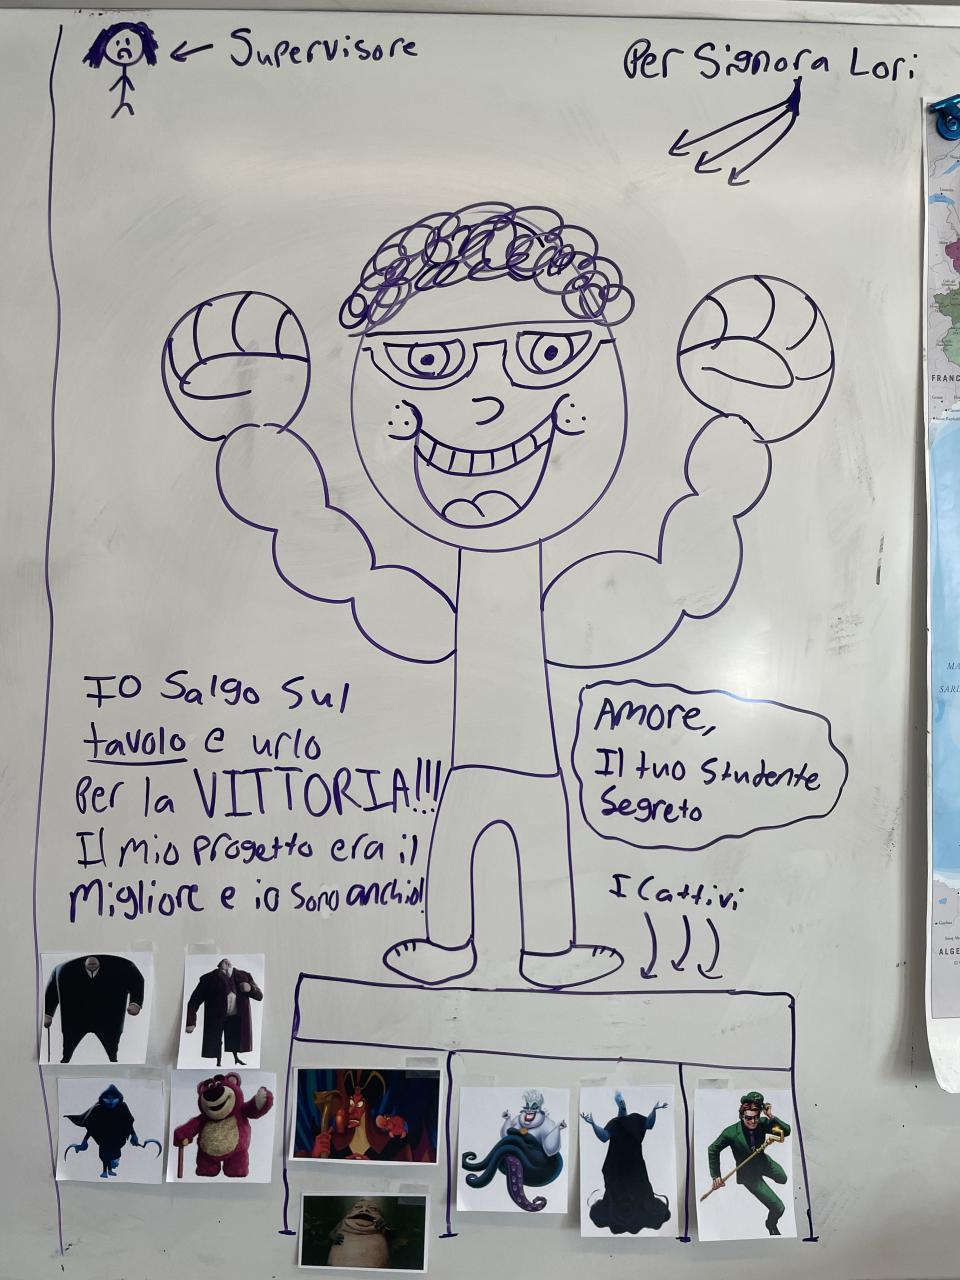 Supervisore
Per Signora Lori
Io Salgo Sul
tavolo e urlo
Per la VITTORIA!!!
Il mio progetto era il
migliore e io sono anchio!
Amore,
Il tuo studente
Segreto
I Cattivi
FRANC
MA
SARD
ALGE